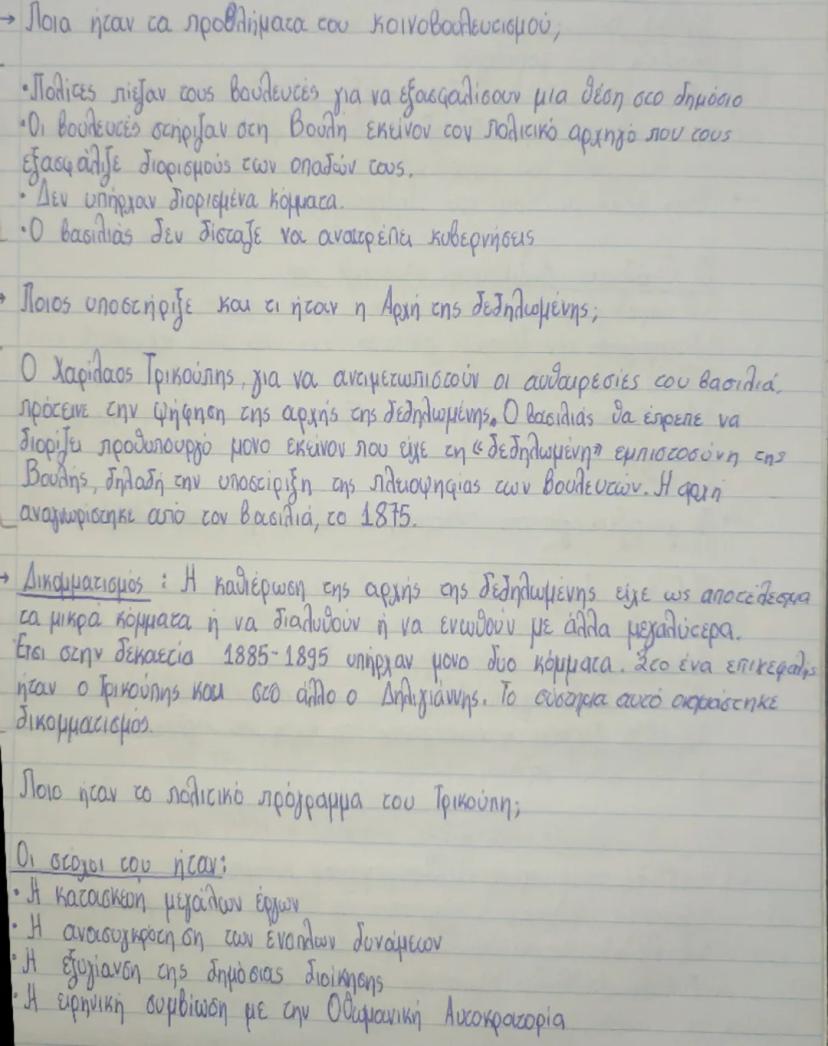 → Ποια ήταν τα προβλήματα του κοινοβουλευτισμού;
• Πολίτες πίεζαν τους βουλευτές για να εξασφαλίσουν μια θέση στο δημόσιο
• Οι βουλευτές στήριζαν στη Βουλή εκείνον τον πολιτικό αρχηγό που τους
εξασφάλιζε διορισμούς των οπαδών τους.
• Δεν υπήρχαν διορισμένα κόμματα.
• Ο βασιλιάς δεν δίσταζε να ανατρέπει κυβερνήσεις
→ Ποιος υποστήριξε και τι ήταν η Αρχή της δεδηλωμένης;
Ο Χαρίλαος Τρικούπης, για να αντιμετωπιστούν οι αυθαιρεσίες του βασιλιά,
πρότεινε την ψήφηση της αρχής της δεδηλωμένης. Ο βασιλιάς θα έπρεπε να
διορίζει προθυπουργό μονο εκείνον που είχε τη «δεδηλωμένη» εμπιστοσύνη της
Βουλής, δηλαδή την υποστίριξη της πλειοψηφίας των βουλευτών. Η αρχή
αναγνωρίστηκε από τον βασιλιά, το 1875.
→ Δικομματισμός : Η καθιέρωση της αρχής της δεδηλωμένης είχε ως αποτέλεσμα
τα μικρά κόμματα ή να διαλυθούν ή να ενωθούν με άλλα μεγαλύτερα.
Έτσι στην δεκαετία 1885-1895 υπήρχαν μονο δυο κόμματα. Στο ένα επικεφαλής
ήταν ο Τρικούπης και στο άλλο ο Δηλιγιάννης. Το σύστημα αυτό ονομάστηκε
δικομματισμός.
Ποιο ήταν το πολιτικό πρόγραμμα του Τρικούπη;
Οι στόχοι του ήταν:
• Η κατασκεή μεγάλων έργων
• Η ανασυγκρότηση των ένοπλων δυνάμεων
• Η εξυγίανση της δημόσιας διοίκησης
• Η ειρηνική συμβίωση με την Οθωμανική Αυτοκρατορία